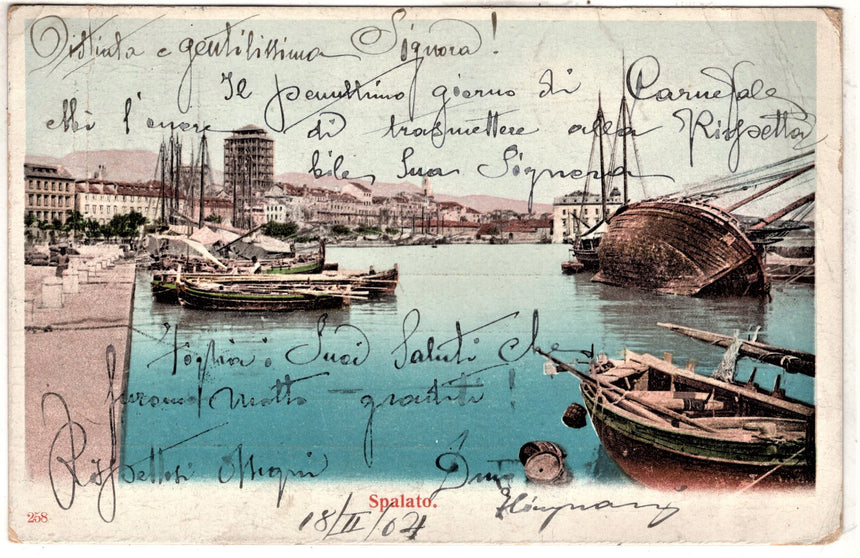 Distinta e gentilissima Signora!
Il penultimo giorno di Carnevale
ebbi l'onore di trasmettere alla Rispetta
bile Sua Signora
i Suoi Saluti che
furono molto graditi!
Rispettosi Ossequi
Spalato.
258
18/II/04